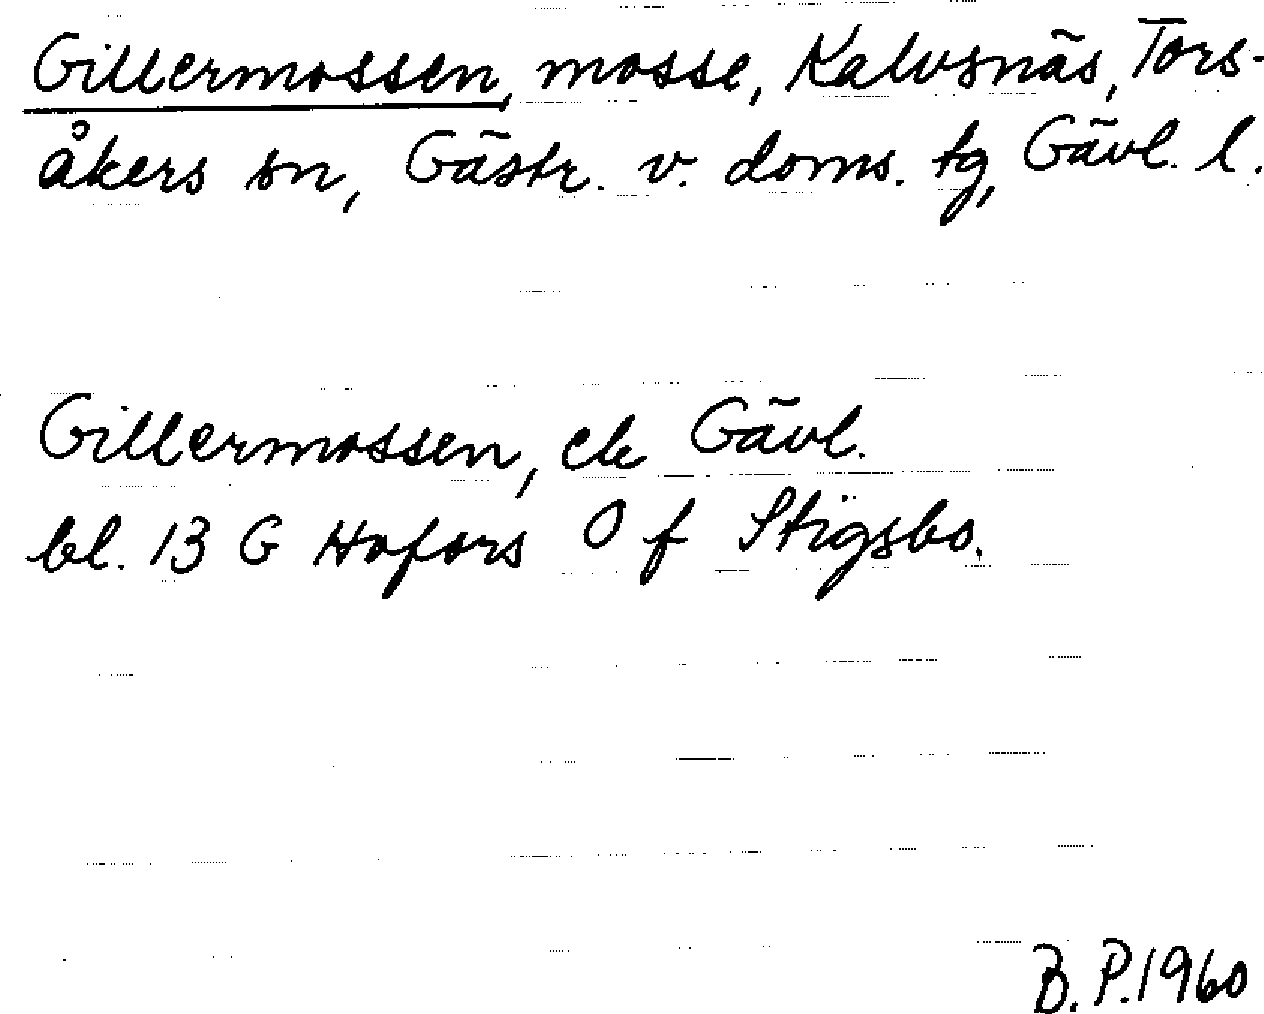 Gillermossen, mosse, Kalvsnäs, Tors-
åkers sn, Gästr. v. doms. tg, Gävl. l.
Gillermossen, ek Gävl.
bl. 13 G Hofors O f Stigsbo.
B. P. 1960